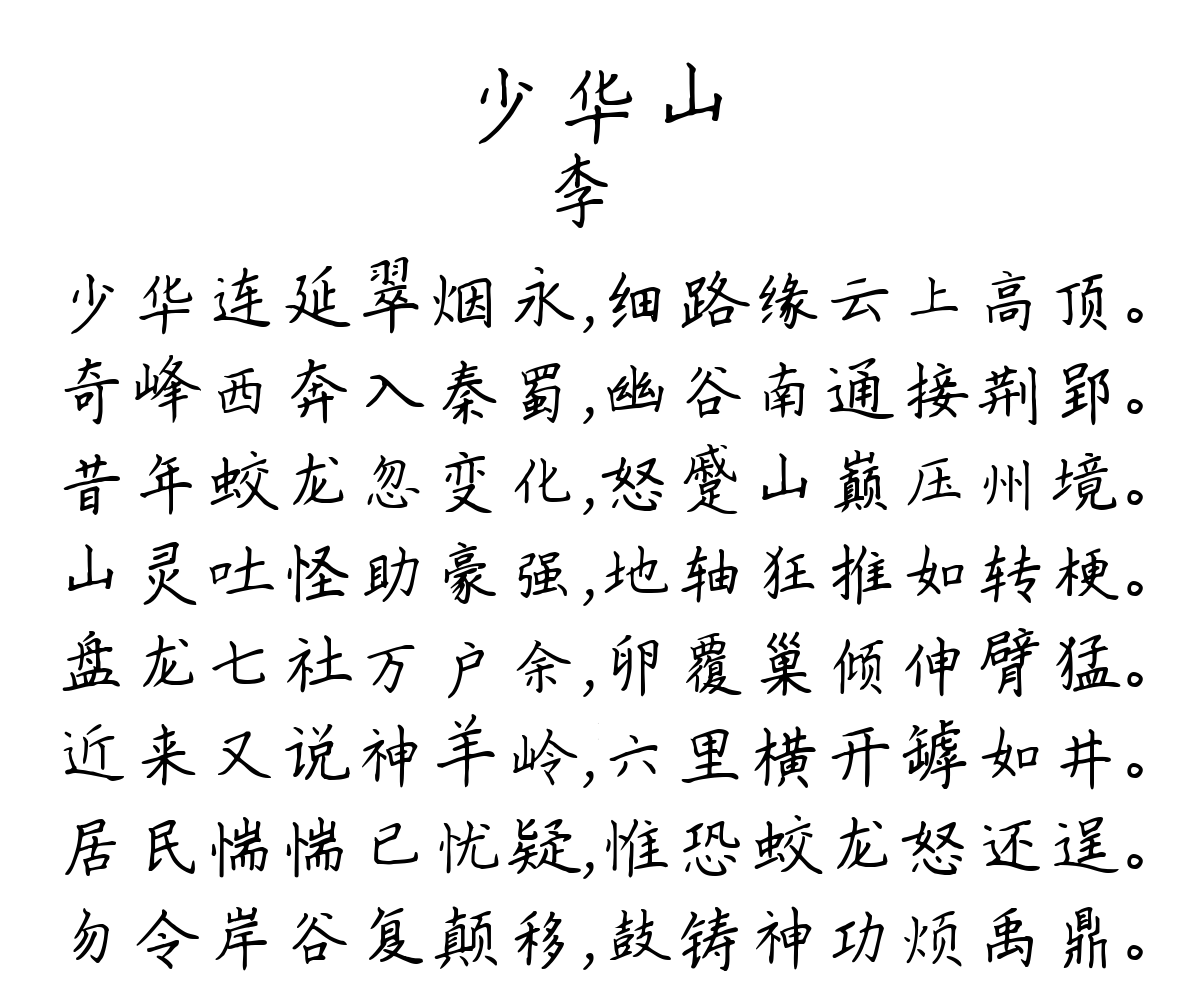 少华山
李
少华连延翠烟永,细路缘云上高顶。
奇峰西奔入秦蜀,幽谷南通接荆郢。
昔年蛟龙忽变化,怒蹙山巅压州境。
山灵吐怪助豪强,地轴狂推如转梗。
盘龙七社万户余,卵覆巢倾伸臂猛。
近来又说神羊岭,六里横开罅如井。
居民惴惴已忧疑,惟恐蛟龙怒还逞。
勿令岸谷复颠移,鼓铸神功烦禹鼎。